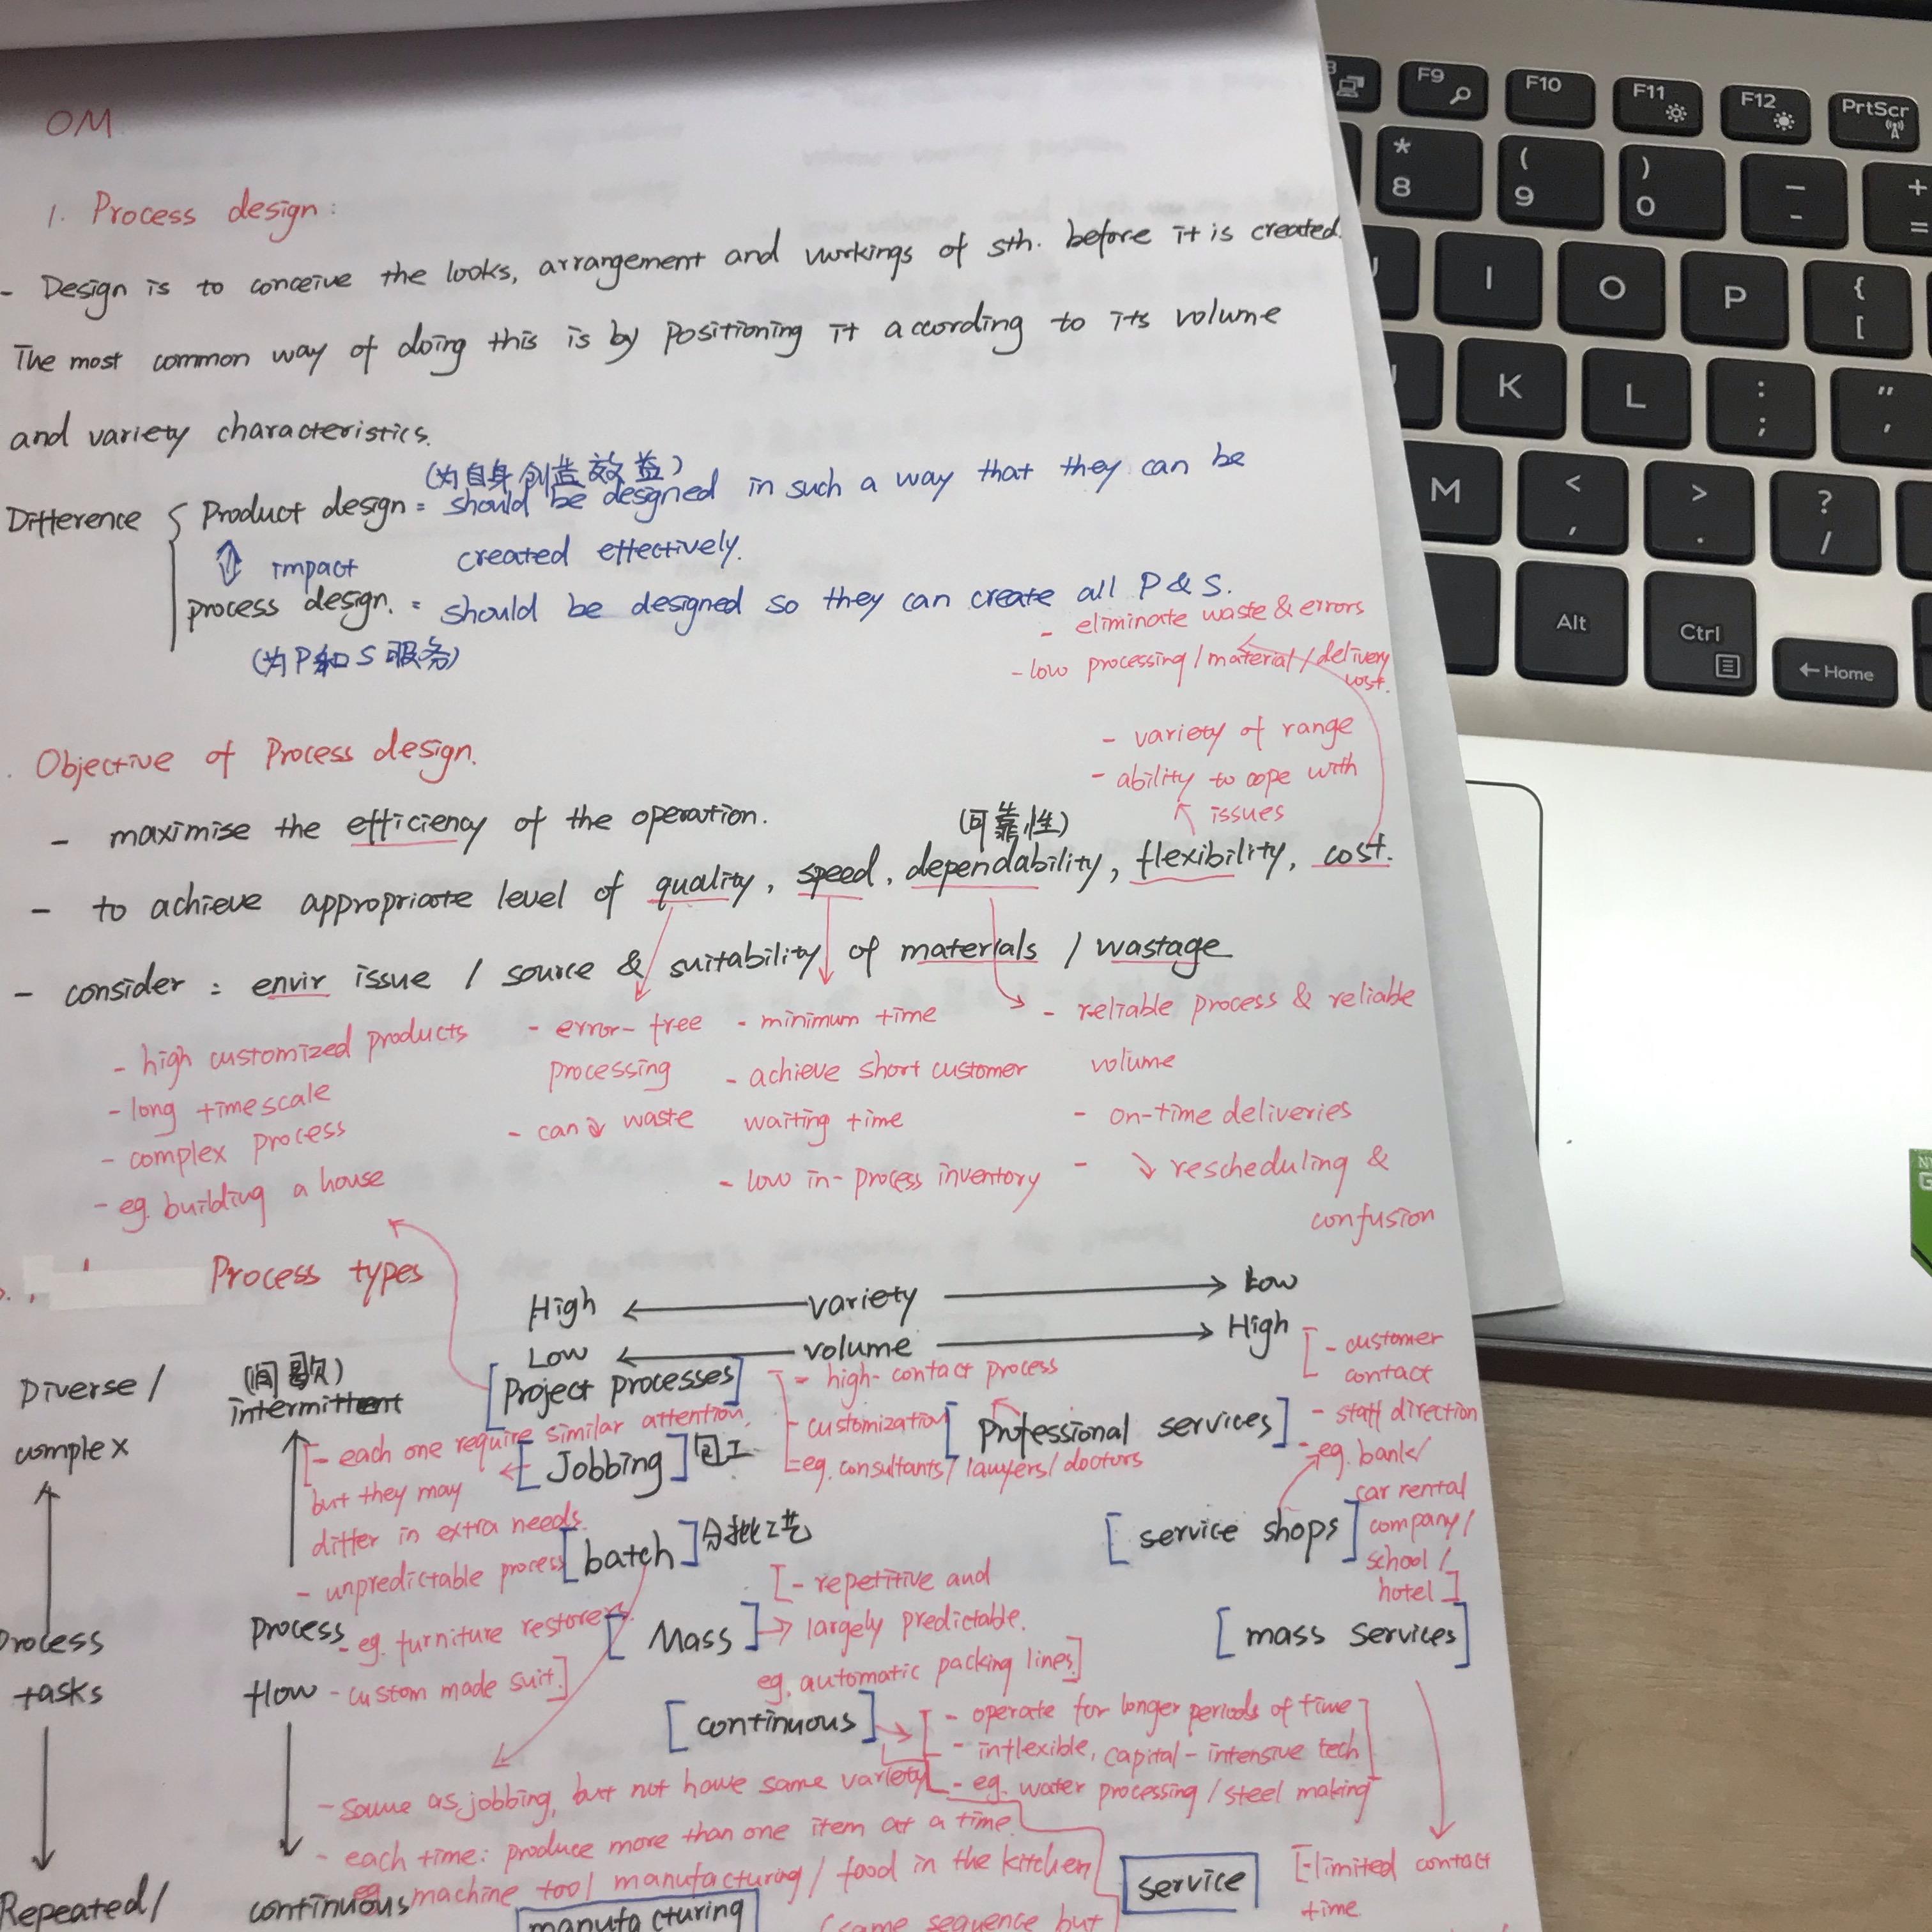 OM
1. Process design:
- Design is to conceive the looks, arrangement and workings of sth. before it is created.
The most common way of doing this is by positioning it according to its volume
and variety characteristics.
(为自身创造效益)
Difference { Product design = should be designed in such a way that they can be
impact created effectively.
process design. = should be designed so they can create all P & S.
(为P和S服务)
- eliminate waste & errors
- low processing / material / delivery
cost.
- variety of range
- ability to cope with
issues
Objective of Process design.
- maximise the efficiency of the operation.
(可靠性)
- to achieve appropriate level of quality, speed, dependability, flexibility, cost.
- consider = envir issue / source & suitability of materials / wastage
- high customized products
- long timescale
- complex process
- eg. building a house
- error-free
processing
- can ↓ waste
- minimum time
- achieve short customer
waiting time
- low in-process inventory
- reliable process & reliable
volume
- on-time deliveries
- ↓ rescheduling &
confusion
Process types
High ← variety → Low
Low ← volume → High
Diverse /
complex
(间歇)
intermittent
[Project processes]
- high-contact process
- customization
eg. consultants / lawyers / doctors
[Professional services]
- customer
contact
- staff direction
- eg. bank/
car rental
company/
school /
hotel]
[- each one require similar attention,
but they may
differ in extra needs.
- unpredictable process
- eg. furniture restorers.
- custom made suit.]
[Jobbing]
[batch] 分批工艺
[service shops]
Process
tasks
Process
flow
[Mass]
[- repetitive and
largely predictable.
eg. automatic packing lines.]
[mass services]
[continuous]
- operate for longer periods of time
- inflexible, capital-intensive tech
- eg. water processing / steel making
- same as jobbing, but not have same variety
- each time: produce more than one item at a time.
eg. machine tool manufacturing / food in the kitchen
Repeated/
continuous
manufacturing
service
[-limited contact
time
(same sequence but
F9
F10
F11
F12
PrtScr
*
8
(
9
)
0
-
+
=
I
O
P
{
[
K
L
:
;
"
,
M
<
,
>
.
?
/
Alt
Ctrl
Home